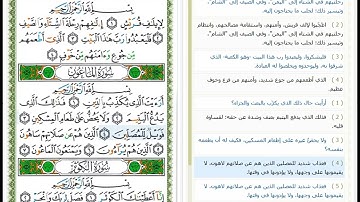 بِسْمِ اللَّهِ الرَّحْمَٰنِ الرَّحِيمِ
لِإِيلَٰفِ قُرَيْشٍ ١ إِۦلَٰفِهِمْ رِحْلَةَ الشِّتَاءِ وَالصَّيْفِ ٢
فَلْيَعْبُدُوا رَبَّ هَٰذَا الْبَيْتِ ٣ الَّذِي أَطْعَمَهُم
مِّن جُوعٍ وَءَامَنَهُم مِّنْ خَوْفٍ ٤
سُورَةُ الْمَاعُونِ
بِسْمِ اللَّهِ الرَّحْمَٰنِ الرَّحِيمِ
أَرَءَيْتَ الَّذِي يُكَذِّبُ بِالدِّينِ ١ فَذَٰلِكَ الَّذِي
يَدُعُّ الْيَتِيمَ ٢ وَلَا يَحُضُّ عَلَىٰ طَعَامِ الْمِسْكِينِ ٣
فَوَيْلٌ لِّلْمُصَلِّينَ ٤ الَّذِينَ هُمْ عَن صَلَاتِهِمْ سَاهُونَ
٥ الَّذِينَ هُمْ يُرَاءُونَ ٦ وَيَمْنَعُونَ الْمَاعُونَ ٧
سُورَةُ الْكَوْثَرِ
بِسْمِ اللَّهِ الرَّحْمَٰنِ الرَّحِيمِ
إِنَّا أَعْطَيْنَاكَ الْكَوْثَرَ
رحلتيهم في الشتاء إلى "اليمن"، وفي الصيف إلى "الشام"
وتيسير ذلك؛ لجلب ما يحتاجون إليه.
( 2 ) اعْجَبوا لإلف قريش، وأمنهم، واستقامة مصالحهم، وانتظام
رحلتيهم في الشتاء إلى "اليمن"، وفي الصيف إلى "الشام"،
وتيسير ذلك؛ لجلب ما يحتاجون إليه.
( 3 ) فليشكروا، وليعبدوا رب هذا البيت -وهو الكعبة- الذي
شرفوا به، وليوحدوه ويخلصوا له العبادة.
( 4 ) الذي أطعمهم من جوع شديد، وآمنهم من فزع وخوف
عظيم.
( 1 ) أرأيت حال ذلك الذي يكذّب بالبعث والجزاء؟
( 2 ) فذلك الذي يدفع اليتيم بعنف وشدة عن حقه؛ لقساوة
قلبه.
( 3 ) ولا يحضُّ غيره على إطعام المسكين، فكيف له أن يطعمه
بنفسه؟
( 4 ) فعذاب شديد للمصلين الذين هم عن صلاتهم لاهون، لا
يقيمونها على وجهها، ولا يؤدونها في وقتها.
( 5 ) فعذاب شديد للمصلين الذين هم عن صلاتهم لاهون، لا
يقيمونها على وجهها، ولا يؤدونها في وقتها.